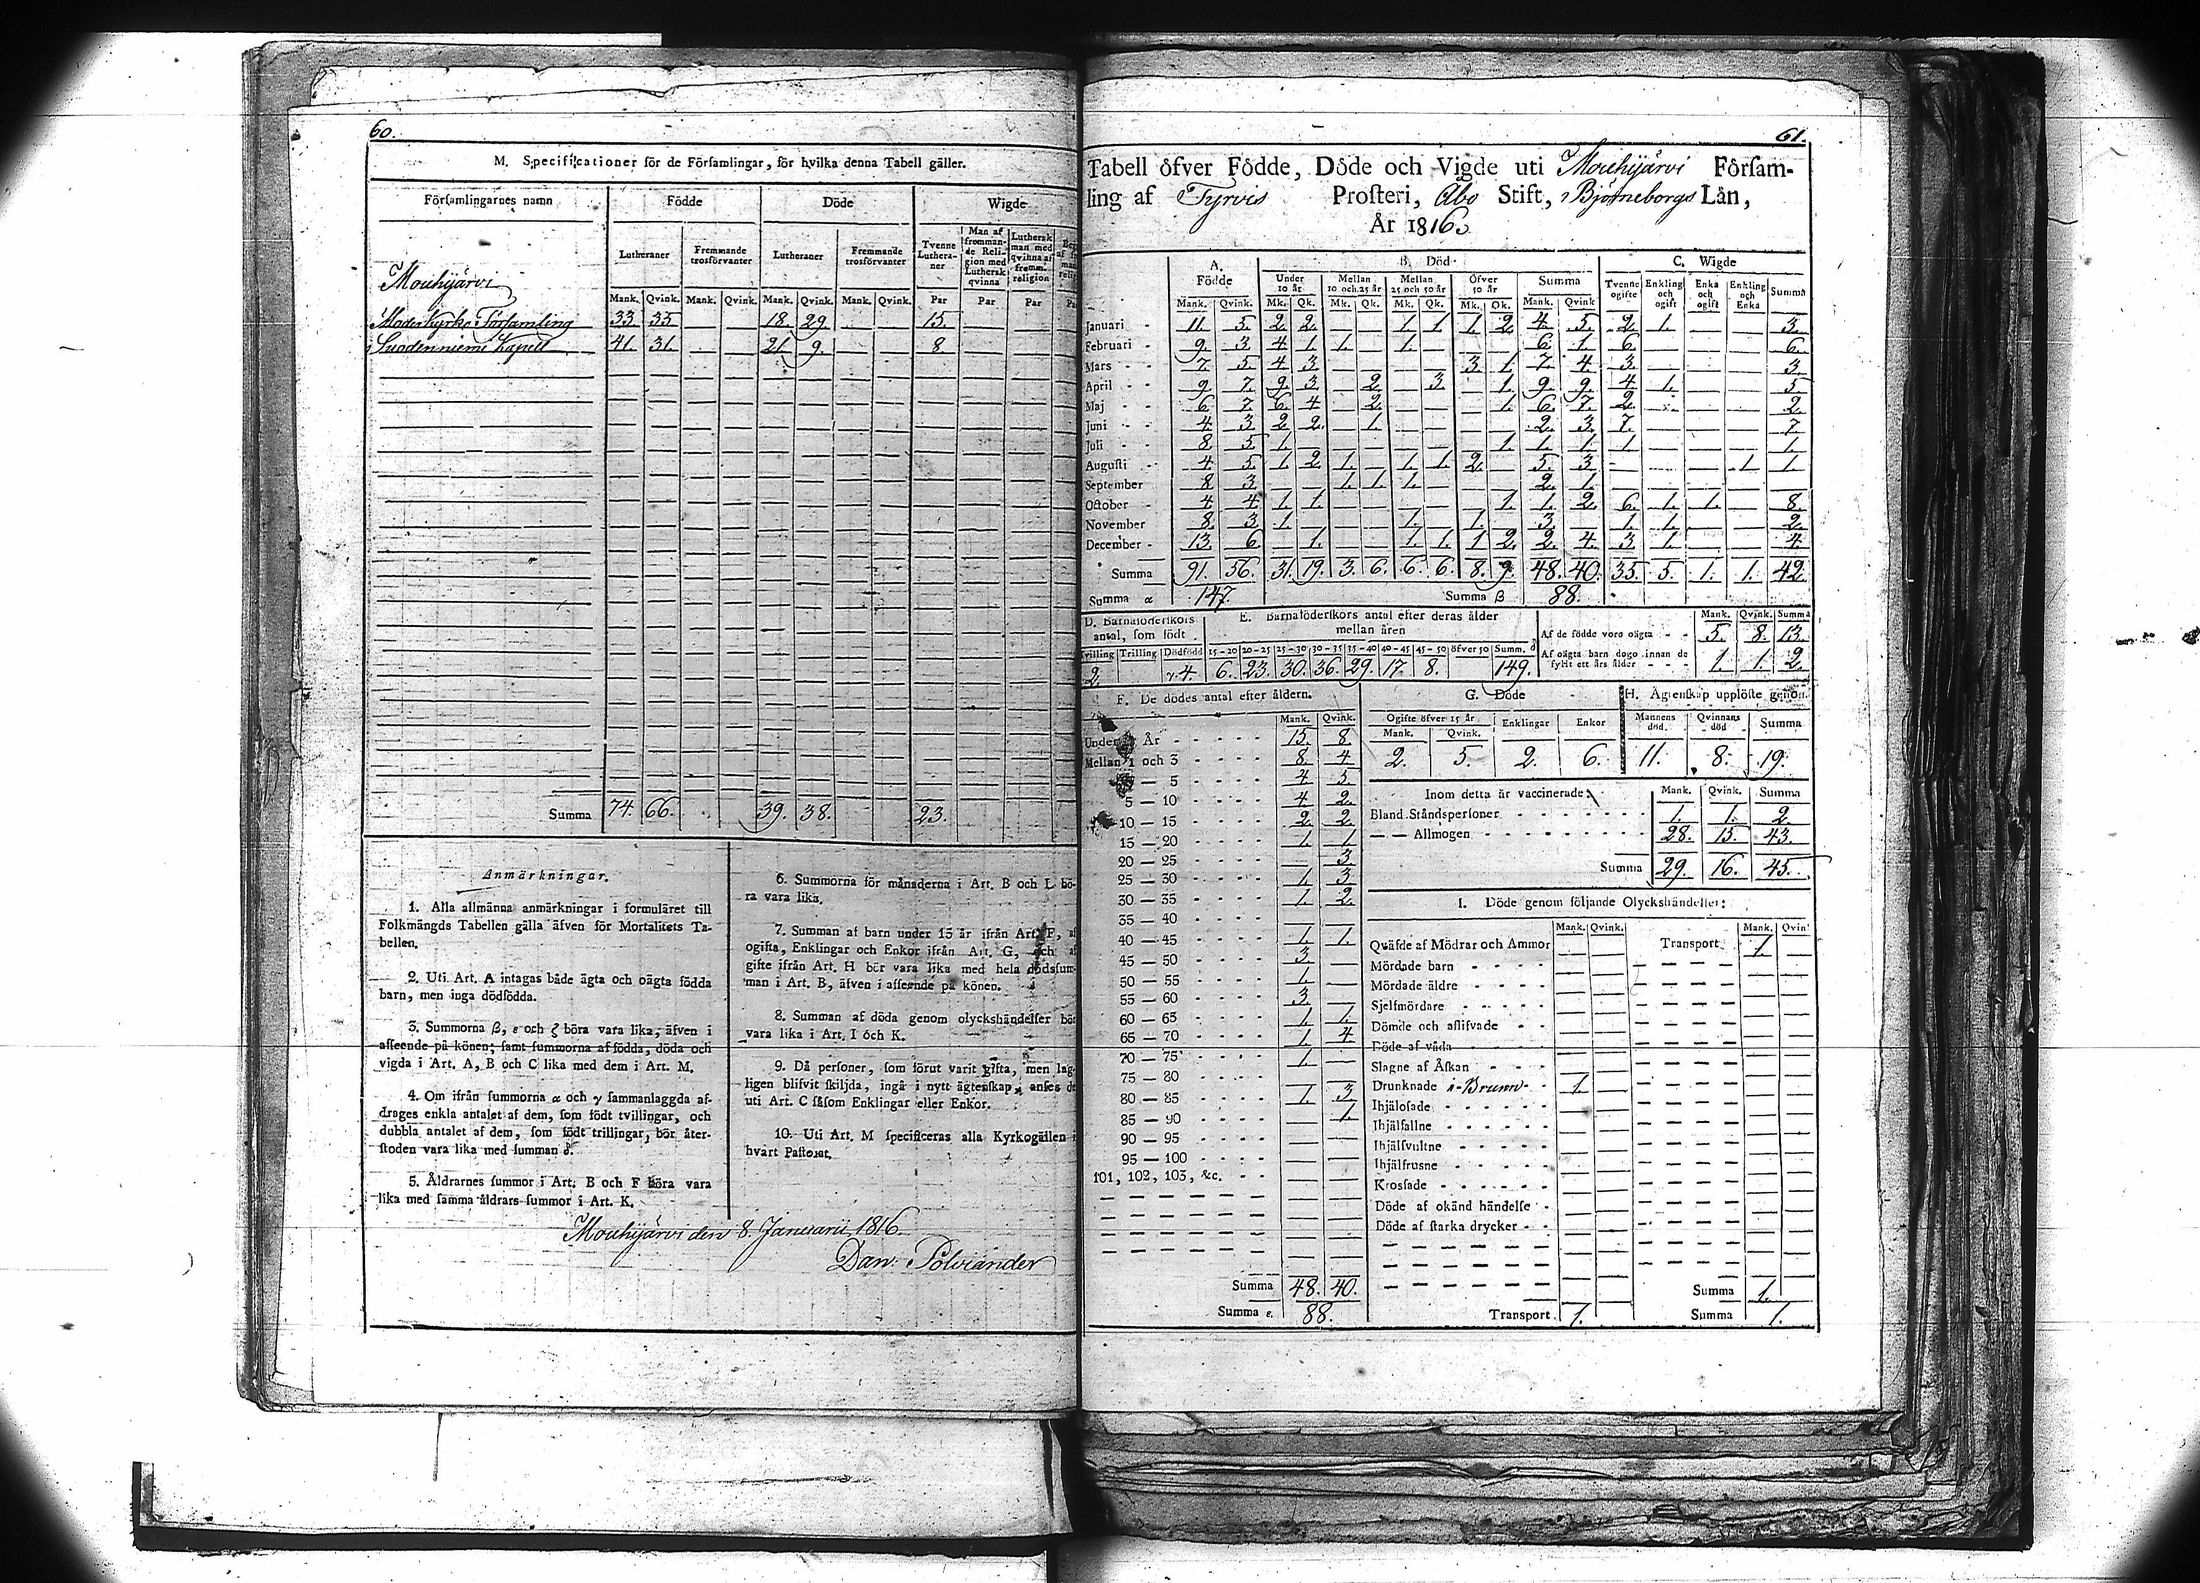 60.
M. Specificationer för de Förſamlingar, för hvilka denna Tabell gäller.
Förſamlingarnes namn Födde Döde Wigde
Lutheraner Fremmande trosförvanter Lutheraner Fremmande trosförvanter Tvenne Lutheraner Man af fremmande Religion med Luthersk qvinna Luthersk man med qvinna af fremm. religion
Mouhijärvi
Mank. Qvink. Mank. Qvink. Mank. Qvink. Mank. Qvink. Par Par Par
Moder Kyrko Församling 33. 35. — — 18. 29. — — 15. — —
Suodenniemi Kapell 41. 31. — — 21. 9. — — 8. — —
Summa 74. 66. 39. 38. 23.
Anmärkningar.
1. Alla allmänna anmärkningar i formuläret till
Folkmängds Tabellen gälla äfven för Mortalitets Ta-
bellen.
2. Uti Art. A intagas både ägta och oägta födda
barn, men inga dödfödda.
3. Summorna β, ε och ζ böra vara lika, äfven i
afſeende på könen; ſamt ſummorna af födda, döda och
vigda i Art. A, B och C lika med dem i Art. M.
4. Om ifrån ſummorna α och γ ſammanlaggda af-
drages enkla antalet af dem, ſom födt tvillingar, och
dubbla antalet af dem, ſom födt trillingar, bör åter-
ſtoden vara lika med ſumman δ.
5. Åldrarnes ſummor i Art. B och F böra vara
lika med ſamma åldrars ſummor i Art. K.
6. Summorna för månaderna i Art. B och L bö-
ra vara lika.
7. Summan af barn under 15 år ifrån Art. F, af
ogifta, Enklingar och Enkor ifrån Art. G, och af
gifte ifrån Art. H bör vara lika med hela dödsſum-
man i Art. B, äfven i afſeende på könen.
8. Summan af döda genom olyckshändelſer bör
vara lika i Art. I och K.
9. Då perſoner, ſom förut varit gifta, men lag-
ligen blifvit ſkiljda, ingå i nytt ägtenſkap, anſes de
uti Art. C ſåſom Enklingar eller Enkor.
10. Uti Art. M ſpecificeras alla Kyrkogällen i
hvart Paſtorat.
Mouhijärvi den 8. Januarii 1816.
Dan: Polviander
61.
Tabell öfver Födde, Döde och Vigde uti Mouhijärvi Förſam-
ling af Tyrvis Proſteri, Åbo Stift, Björneborgs Län,
År 1816.
A. Födde B. Död C. Wigde
Under 10 år Mellan 10 och 25 år Mellan 25 och 50 år Öfver 50 år Summa Tvenne ogifte Enkling och ogift Enka och ogift Enkling och Enka Summa
Mank. Qvink. Mk. Qk. Mk. Qk. Mk. Qk. Mk. Qk. Mank. Qvink
Januari - 11. 5. 2. 2. — — 1. 1. 1. 2. 4. 5. 2. 1. — — 3.
Februari - 9. 3. 4. 1. 1. — 1. — — — 6. 1. 6. — — — 6.
Mars - - 7. 5. 4. 3. — — — — 3. 1. 7. 4. 3. — — — 3.
April - - 9. 7. 9. 3. — 2. — 3. — 1. 9. 9. 4. 1. — — 5.
Maj - - 6. 7. 6. 4. — 2. — — — 1. 6. 7. 2. — — — 2.
Juni - - 4. 3. 2. 2. — 1. — — — — 2. 3. 7. — — — 7.
Juli - - 8. 5. 1. — — — — — — 1. 1. 1. 1. — — — 1.
Auguſti - - 4. 5. 1. 2. 1. — 1. 1. 2. — 5. 3. — — — 1. 1.
September 8. 3. — — 1. 1. 1. — — — 2. 1. — — — — —
October - 4. 4. 1. 1. — — — — — 1. 1. 2. 6. 1. 1. — 8.
November 8. 3. 1. — — — 1. — 1. — 3. — 1. 1. — — 2.
December - 13. 6. — 1. — — 1. 1. 1. 2. 2. 4. 3. 1. — — 4.
Summa 91. 56. 31. 19. 3. 6. 6. 6. 8. 9. 48. 40. 35. 5. 1. 1. 42.
Summa α 147. Summa β 88.
D. Barnaföderſkors antal, ſom födt
Tvilling Trilling Dödfödd
2. γ. 4.
E. Barnaföderſkors antal efter deras ålder mellan åren
15-20 20-25 25-30 30-35 35-40 40-45 45-50 öfver 50 Summ. δ
6. 23. 30. 36. 29. 17. 8. 149.
Mank. Qvink. Summa
Af de födde voro oägta - - 5. 8. 13.
Af oägta barn dogo innan de fyllt ett års ålder - - - 1. 1. 2.
F. De dödes antal efter åldern.
Mank. Qvink.
Under 1 År - - - - - 15. 8.
Mellan 1 och 3 - - - - 8. 4.
3 — 5 - - - - 4. 5.
5 — 10 - - - - 4. 2.
10 — 15 - - - - 2. 2.
15 — 20 - - - - 1. 1.
20 — 25 - - - - — 3.
25 — 30 - - - - 1. 3.
30 — 35 - - - - 1. 2.
35 — 40 - - - - — —
40 — 45 - - - - 1. 1.
45 — 50 - - - - 3. —
50 — 55 - - - - 1. —
55 — 60 - - - - 3. —
60 — 65 - - - - 1. 1.
65 — 70 - - - - 1. 4.
70 — 75 - - - - 1. —
75 — 80 - - - - — —
80 — 85 - - - - 1. 3.
85 — 90 - - - - — 1.
90 — 95 - - - - — —
95 — 100 - - - - — —
101, 102, 103, &c. - - — —
Summa 48. 40.
Summa ε. 88.
G. Döde
Ogifte öfver 15 år Enklingar Enkor
Mank. Qvink.
2. 5. 2. 6.
H. Ägtenſkap upplöſte genom
Mannens död Qvinnans död Summa
11. 8. 19.
Inom detta år vaccinerade: Mank. Qvink. Summa
Bland Ståndsperſoner 1. 1. 2.
— — Allmogen 28. 15. 43.
Summa 29. 16. 45.
I. Döde genom följande Olyckshändelſer:
Mank. Qvink. Mank. Qvin
Qväfde af Mödrar och Ammor — — Transport 1. —
Mördade barn
Mördade äldre
Sjelfmördare
Dömde och aflifvade
Döde af våda
Slagne af Åſkan
Drunknade i Brunn 1.
Ihjäloſade
Ihjälfallne
Ihjälſvultne
Ihjälfrusne
Krosſade
Döde af okänd händelſe
Döde af ſtarka drycker
Summa 1.
Transport 1. Summa 1.